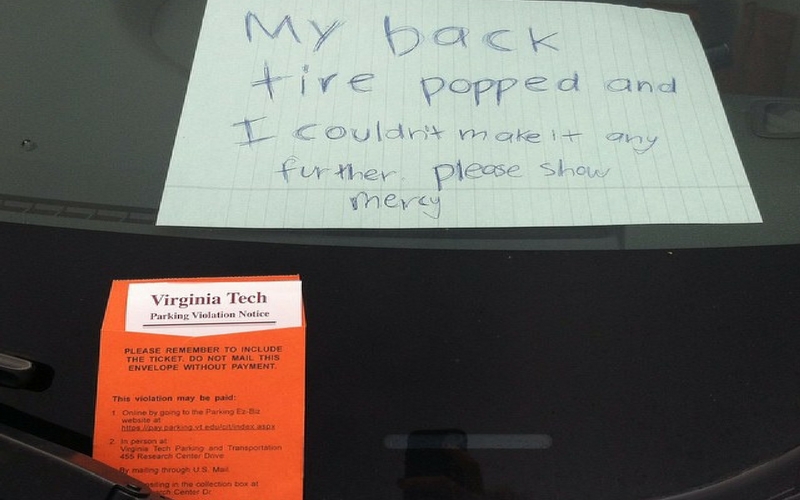 My back
tire popped and
I couldn't make it any
further. please show
mercy
Virginia Tech
Parking Violation Notice
PLEASE REMEMBER TO INCLUDE
THE TICKET. DO NOT MAIL THIS
ENVELOPE WITHOUT PAYMENT.
This violation may be paid:
1. Online by going to the Parking Ez-Biz
website at:
https://pay.parking.vt.edu/cit/index.aspx
2. In person at:
Virginia Tech Parking and Transportation
455 Research Center Drive
By mailing through U.S. Mail.
in the collection box at
Center Dr